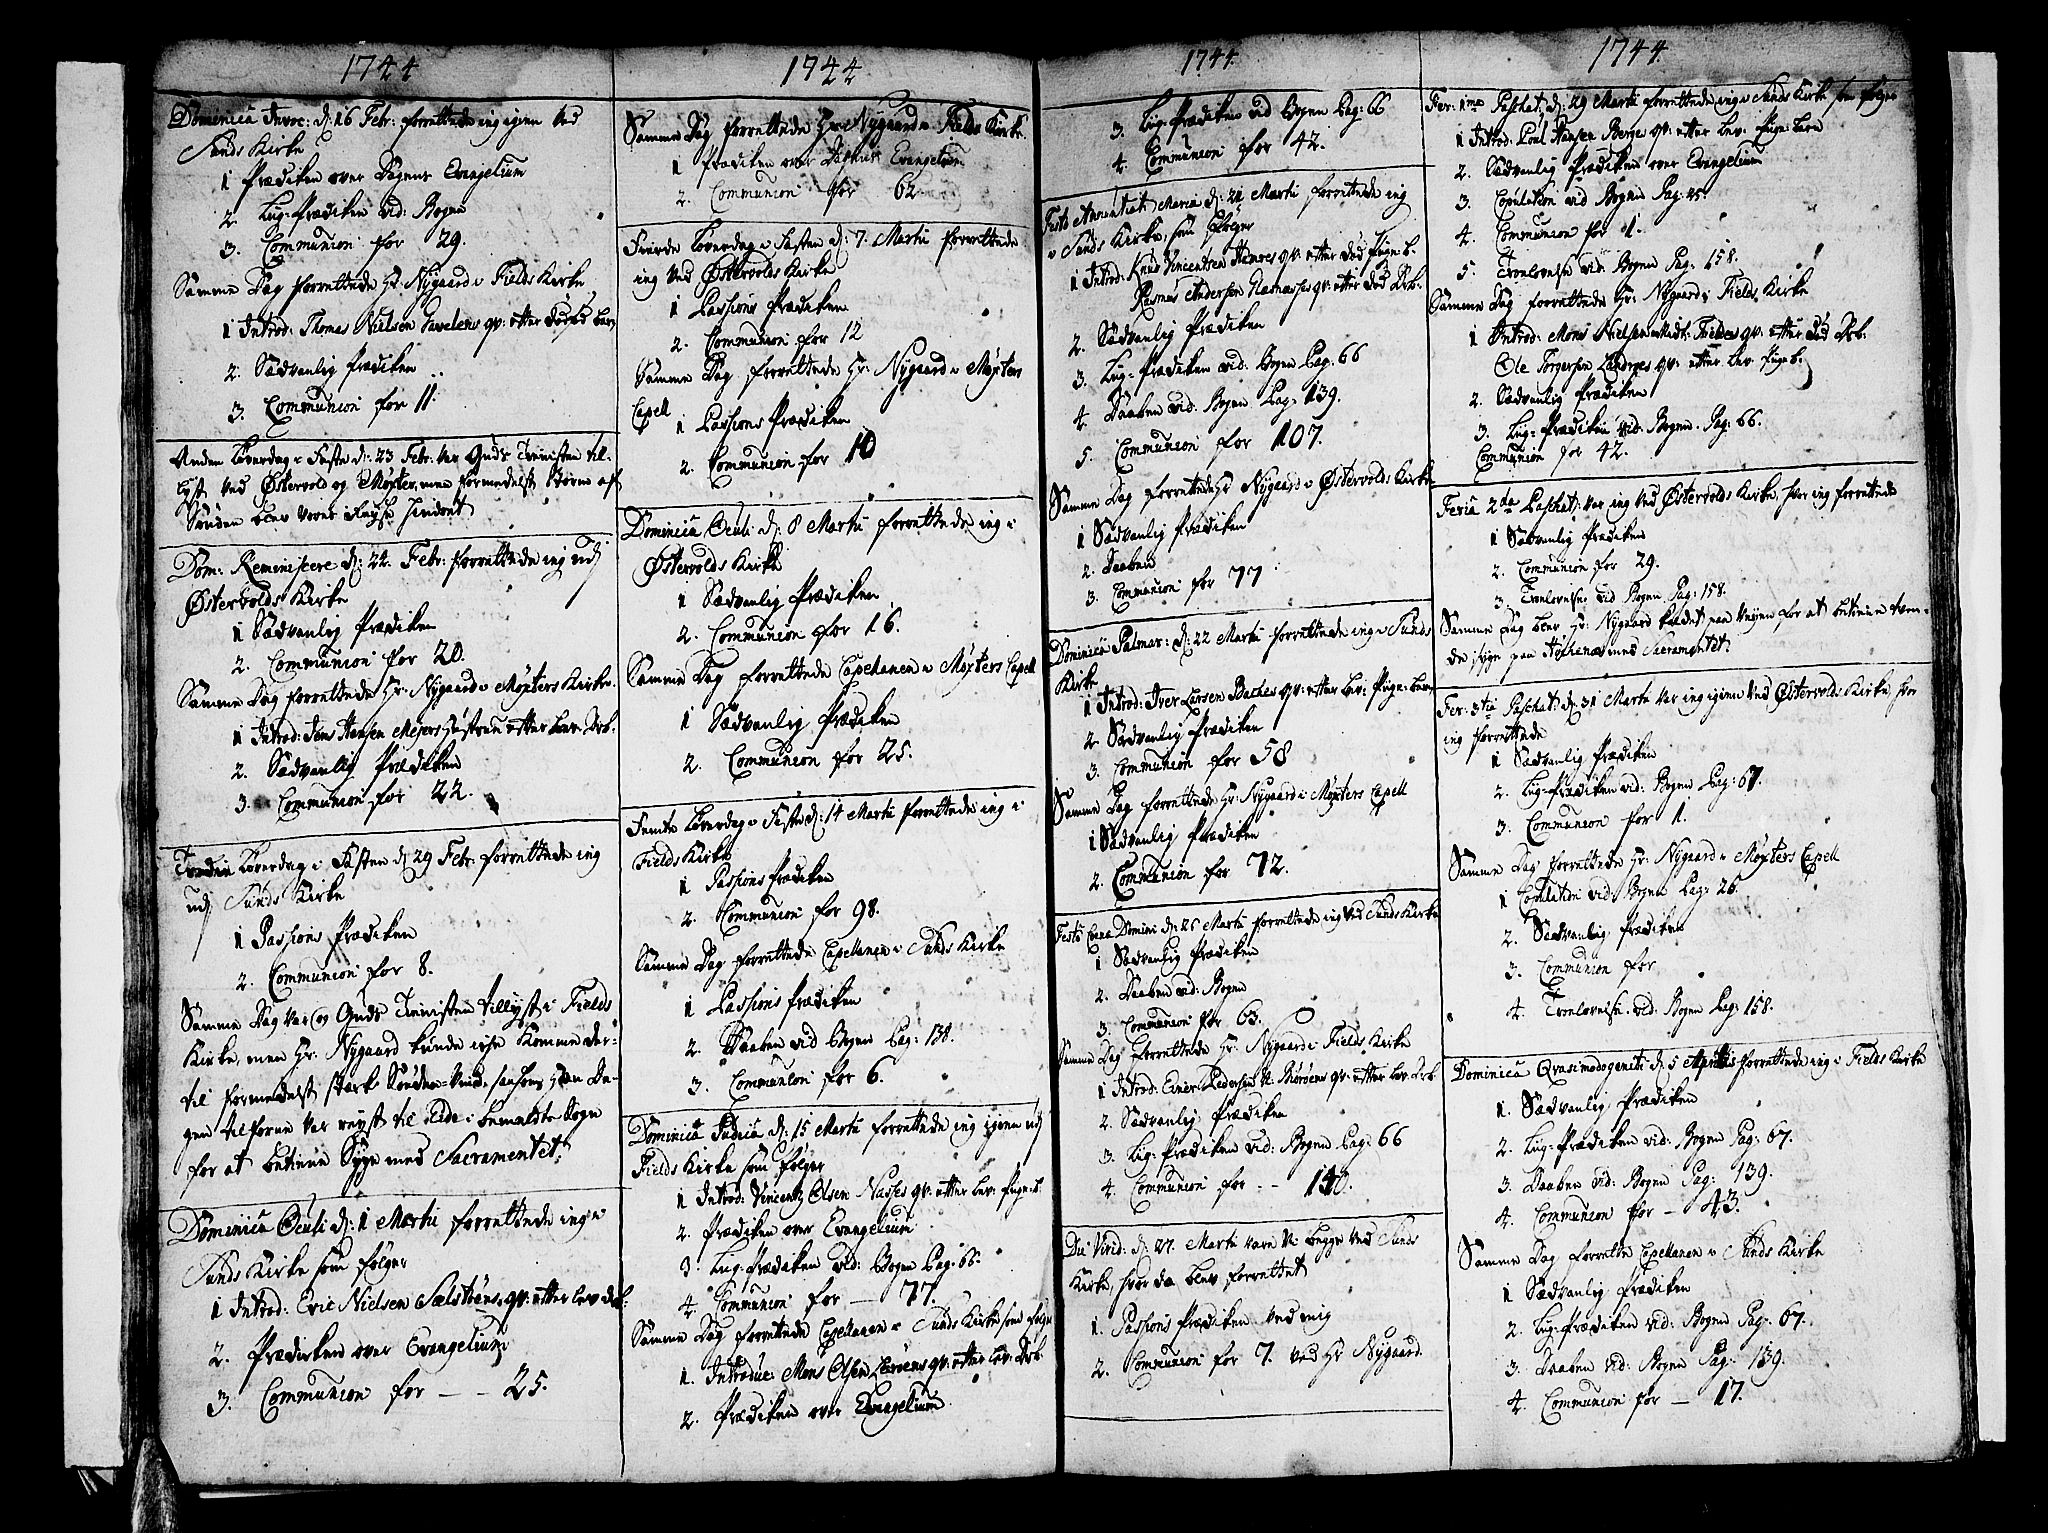 1744
Dominica Invoc: d: 16 Febr: forrettede ieg igien ved
Sunds Kirke
1 Prædiken over Dagens Evangelium
2. Lig-Prædiken vid: Bogen
3. Communion for 29.
Samme Dag forrettede Hr: Nygaard i Fields Kirke
1 Introd: Thomas Nielsen qv: efter
2. Sædvanlig Prædiken
3. Communion for 11.
Anden Løverdag i Faste d: 23 Febr: var Guds Tienisten til-
lyst ved Østervold og Møxter, men formedelst Storm af
Sønden blev vores Reyse hindret
Dom: Reminiscere d: 24. Febr: forrettede ieg udj
Østervolds Kirke
1 Sædvanlig Prædiken
2. Communion for 20.
Samme Dag forrettede Hr: Nygaard i Møxters Kirke
1 Introd: Jens Hansen Meyers Høstrue efter lev: Drb:
2. Sædvanlig Prædiken
3. Communion for 22.
Tredie Løverdag i Fasten d: 29 Febr: forrettede ieg
udj Sunds Kirke
1 Passions Prædiken
2. Communion for 8.
Samme Dag var og Guds Tienisten tillyst i Fields
Kirke, men Hr: Nygaard kunde icke komme der-
til formedelst stærk Sønden-Vind, saasom han Da-
gen tilforne var reyst til Eide i bemeldte Sogn
for at betiene Syge med Sacramentet.
Dominica Oculi d: 1 Martii forrettede ieg i
Sunds Kirke som følger
1 Introd: Eric Nielsen qv: efter lev: drb:
2. Prædicken over Evangelium
3. Communion for - - 25.
1744
Samme Dag forrettede Hr: Nygaard i Fields Kirke
1 Prædiken over Dagens Evangelium
2. Communion for 62
Fierde Løverdag i Fasten d: 7. Martii forrettede
ieg ved Østervolds Kirke
1 Passions Prædiken
2. Communion for 12
Samme Dag forrettede Hr: Nygaard i Møxters
Capell
1 Passions Prædiken
2. Communion for 10
Dominica Oculi d: 8 Martii forrettede ieg i
Østervolds Kirke
1 Sædvanlig Prædiken
2. Communion for 16.
Samme Dag forrettede Capellanen i Møxters Capell
1 Sædvanlig Prædiken
2. Communion for 25.
Femte Løverdag i Faste d: 14 Martii forrettede ieg i
Fields Kirke
1 Passions Prædiken
2. Communion for 98.
Samme Dag forrettede Capellanen i Sunds Kirke
1 Passions Prædiken
2. Daaben vid Bogen Pag: 138.
3. Communion for 6.
Dominica Judica d: 15 Martii forrettede ieg igien udj
Fields Kirke som følger
1 Introd: Vincentz Olsen qv: efter lev: Pige-b.
2. Prædiken over Evangelium
3 Lig-Prædiken vid: Bogen Pag: 66.
4. Communion for — 77.
Samme Dag forrettede Capellanen i Sunds Kirke som følger
1. Introduc: Mons Olsen qv: efter lev: Drb.
2. Prædiken over Evangelium
1744
3. Lig-Prædiken vid Bogen Pag: 66
4. Communion for 42.
Festo Annuntiat: Mariæ d: 21 Martii forrettede ieg
i Sunds Kirke, som følger
1 Introd: Knud Vincentsen qv: efter død Pige-b.
Rasmus Andersen qv: efter død Drb:
2. Sædvanlig Prædiken
3. Lig-Prædiken vid: Bogen Pag: 66
4. Daaben vid: Bogen Pag: 139.
5. Communion for 107.
Samme Dag forrettede Hr Nygaard i Østervolds Kirke
1 Sædvanlig Prædiken
2. Daaben
3. Communion for 77
Dominica Palmar: d: 22 Martii forrettede ieg i Sunds
Kirke
1 Introd: Iver Larsen Backes qv: efter lev: Pige-barn
2. Sædvanlig Prædiken
3. Communion for 58
Samme Dag forrettede Hr: Nygaard i Møxters Capell
1 Sædvanlig Prædiken
2. Communion for 72.
Festo Cœnæ Domini d: 26 Martii forrettede ieg ved Sunds Kirke
1 Sædvanlig Prædiken
2. Daaben vid: Bogen
3. Communion for 63.
Samme Dag forrettede Hr: Nygaard i Fields Kirke
1 Introd: Einer Pedersen qv: efter lev: Drb
2. Sædvanlig Prædiken
3. Lig-Prædiken vid: Bogen Pag: 66
4. Communion for - - 140.
Die Virid: d: 27. Martii vare vi begge ved Sunds
Kirke, hvor da blev forrettet
1. Passions Prædiken ved mig
2. Communion for 7. ved Hr Nygaard.
1744.
Fer: 1ma Paschat: d: 29 Martii forrettede ieg i Sunds Kirke, som følger
1 Introd: Poul Hansen Berge qv: efter lev: Pige-barn
2. Sædvanlig Prædiken over Evangelium
3. Copulation vid Bogen Pag: 25.
4. Communion for 1.
5. Trolovelse vid: Bogen Pag: 158.
Samme Dag forrettede Hr: Nygaard i Fields Kirke
1 Introd: Mons Nielsen qv: efter død Drb:
Ole Torgersen qv: efter lev: Pige b:
2. Sædvanlig Prædiken
3. Lig-Prædiken vid: Bogen. Pag: 66.
Communion for 42.
Feria 2da Paschat: var ieg ved Østervolds Kirke, hvor ieg forrettede
1 Sædvanlig Prædiken
2. Communion for 29.
3 Trolovelse vid Bogen Pag: 158.
Samme Dag blev Hr: Nygaard kaldet paa Veyen for at betiene tven-
de syge paa med Sacramentet.
Fer: 3tia Paschat: d: 31 Martii var ieg igien ved Østervolds Kirke, hvor
ieg forrettede
1 Sædvanlig Prædiken
2. Lig-Prædiken vid: Bogen Pag: 67.
3. Communion for 1.
Samme Dag forrettede Hr: Nygaard i Møxters Capell
1 Copulation vid: Bogen Pag: 26.
2. Sædvanlig Prædiken
3. Communion for
4. Trolovelse vid: Bogen Pag: 158.
Dominica Qvasimodogeniti d: 5 Aprilis forrettede ieg i Fields Kirke
1. Sædvanlig Prædiken
2. Lig-Prædiken vid: Bogen Pag: 67.
3. Daaben vid: Bogen Pag: 139.
4. Communion for — 43.
Samme Dag forrette Capellanen i Sunds Kirke
1 Sædvanlig Prædiken
2. Lig-Prædiken vid: Bogen Pag: 67.
3. Daaben vid: Bogen Pag: 139.
4. Communion for — 17.